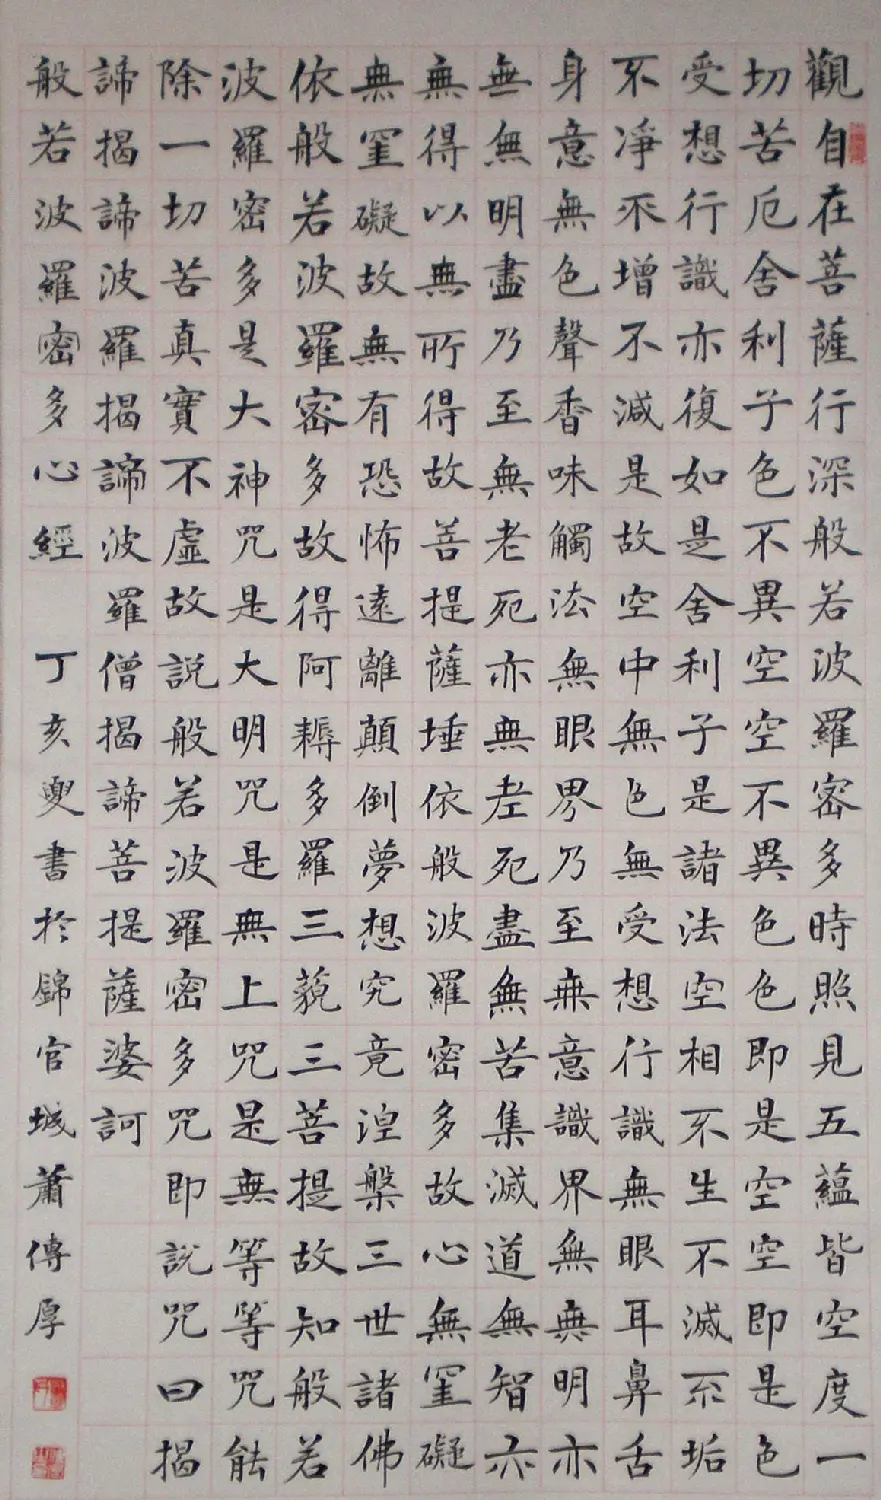 觀自在菩薩行深般若波羅密多時照見五蘊皆空度一
切苦厄舍利子色不異空空不異色色即是空空即是色
受想行識亦復如是舍利子是諸法空相不生不滅不垢
不凈不增不減是故空中無色無受想行識無眼耳鼻舌
身意無色聲香味觸法無眼界乃至無意識界無無明亦
無無明盡乃至無老死亦無老死盡無苦集滅道無智亦
無得以無所得故菩提薩埵依般波羅密多故心無罣礙
無罣礙故無有恐怖遠離顛倒夢想究竟涅槃三世諸佛
依般若波羅密多故得阿耨多羅三藐三菩提故知般若
波羅密多是大神咒是大明咒是無上咒是無等等咒能
除一切苦真實不虛故說般若波羅密多咒即說咒曰揭
諦揭諦波羅揭諦波羅僧揭諦菩提薩婆訶
般若波羅密多心經 丁亥書於錦官城蕭傳厚